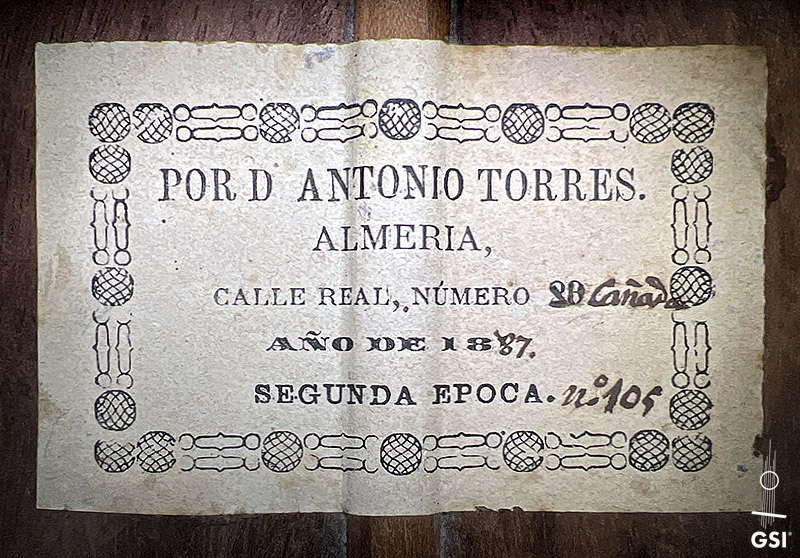 POR D ANTONIO TORRES.
ALMERIA,
CALLE REAL, NÚMERO 20 Cañada
AÑO DE 1887.
SEGUNDA EPOCA. nº 105
GSI